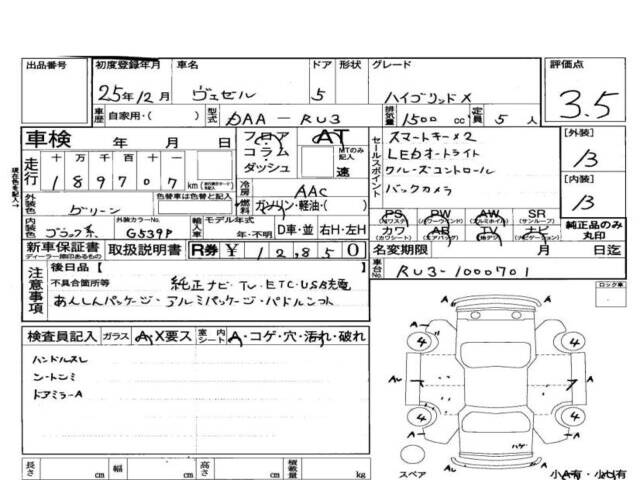 出品番号 初度登録年月 車名 ドア 形状 グレード 評価点
25年12月 ヴェゼル 5 ハイブリッドX 3.5
車歴 自家用・( ) 型式 DAA-RU3 排気量 1500 cc 定員 5 人
車検 年 月 日 フロア AT セールスポイント スマートキー×2 [外装]
コラム・ MTのみ記入 LEDオートライト B
走行 十 万 千 百 十 一 ダッシュ 速 クルーズコントロール
1 8 9 7 0 7 km 冷房 AAC バックカメラ [内装]
現在色を記入→
外装色 グリーン 燃料 ガソリン・軽油・( ) B
PS PW AW SR
(パワステ) (パワーウインド) (アルミホイル) (サンルーフ)
内装色 ブラック系 外装カラーNo. G539P 輸入車 モデル年式 年・不明 D車・並 右H・左H カワ AB TV ナビ 純正品のみ丸印
(カワシート) (エアバッグ) (地デジ) (ナビゲーション)
新車保証書 取扱説明書 R券 ¥ 12,850 名変期限 月 日迄
ディーラー捺印あるもの
注意事項 後日品 [ ] 車台No. RU3-1000701
不具合箇所等 純正ナビ・TV・ETC・USA充電 ロック車
あんしんパッケージ・アルミパッケージ・パドルシフト
検査員記入 ガラス A・X要ス 室内シート A・コゲ・穴・汚れ・破れ
ハンドルスレ
シートシミ
ドアミラーA
A
4 4
A A
4 4
ハゲ
A
スペア 小A有・小U有
長さ cm 幅 cm 高さ cm 積載量 kg